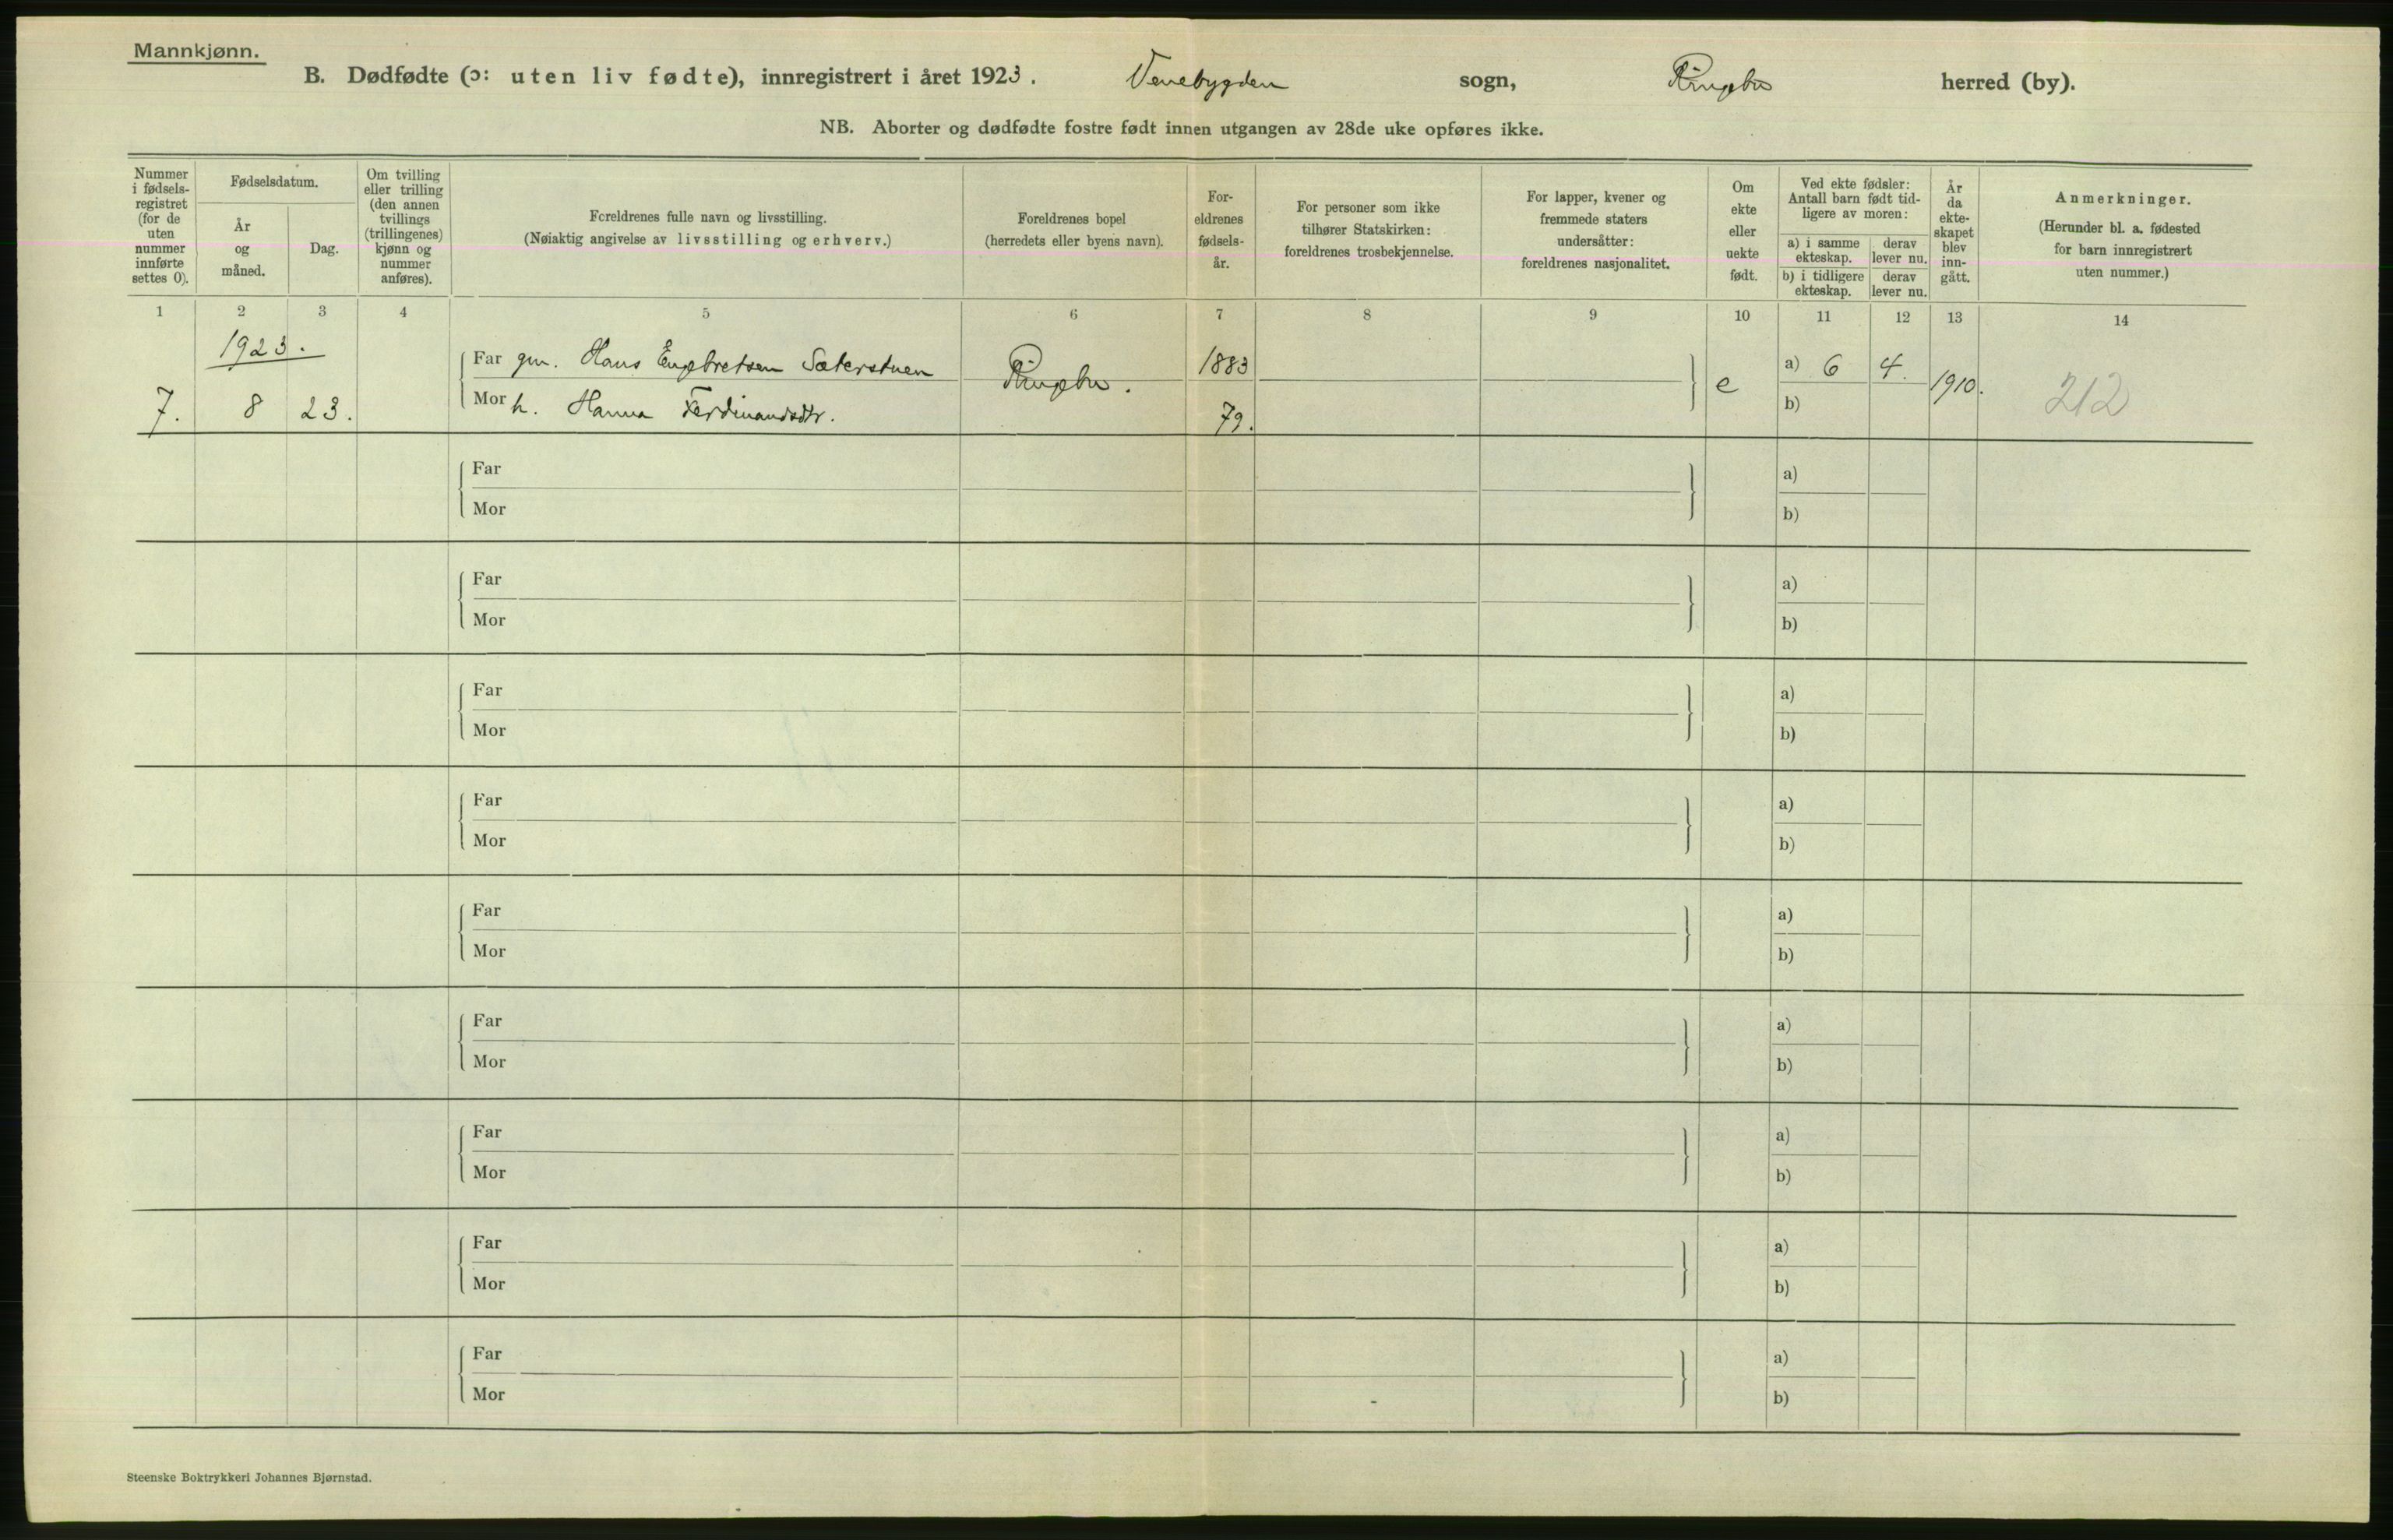 Mannkjønn.
B. Dødfødte (ɔ: uten liv fødte), innregistrert i året 1923. Venebygden sogn, Ringebu herred (by).
NB. Aborter og dødfødte fostre født innen utgangen av 28de uke opføres ikke.
Nummer
i fødsels-
registret
(for de
uten
nummer
innførte
settes 0).
Fødselsdatum.
År
og
måned.
Dag.
Om tvilling
eller trilling
(den annen
tvillings
(trillingenes)
kjønn og
nummer
anføres).
Foreldrenes fulle navn og livsstilling.
(Nøiaktig angivelse av livsstilling og erhverv.)
Foreldrenes bopel
(herredets eller byens navn).
For-
eldrenes
fødsels-
år.
For personer som ikke
tilhører Statskirken:
foreldrenes trosbekjennelse.
For lapper, kvener og
fremmede staters
undersåtter:
foreldrenes nasjonalitet.
Om
ekte
eller
uekte
født.
Ved ekte fødsler:
Antall barn født tid-
ligere av moren:
a) i samme
ekteskap.
derav
lever nu.
b) i tidligere
ekteskap.
derav
lever nu.
År
da
ekte-
skapet
blev
inn-
gått.
Anmerkninger.
(Herunder bl. a. fødested
for barn innregistrert
uten nummer.)
1 2 3 4 5 6 7 8 9 10 11 12 13 14
1923.
Far gm. Hans Engebretsen Sæterstuen 1883 a) 6 4.
7. 8 23. Mor h. Hanna Ferdinandsdtr. Ringebu. 79. e b) 1910. 212
Far a)
Mor b)
Far a)
Mor b)
Far a)
Mor b)
Far a)
Mor b)
Far a)
Mor b)
Far a)
Mor b)
Far a)
Mor b)
Far a)
Mor b)
Far a)
Mor b)
Steenske Boktrykkeri Johannes Bjørnstad.